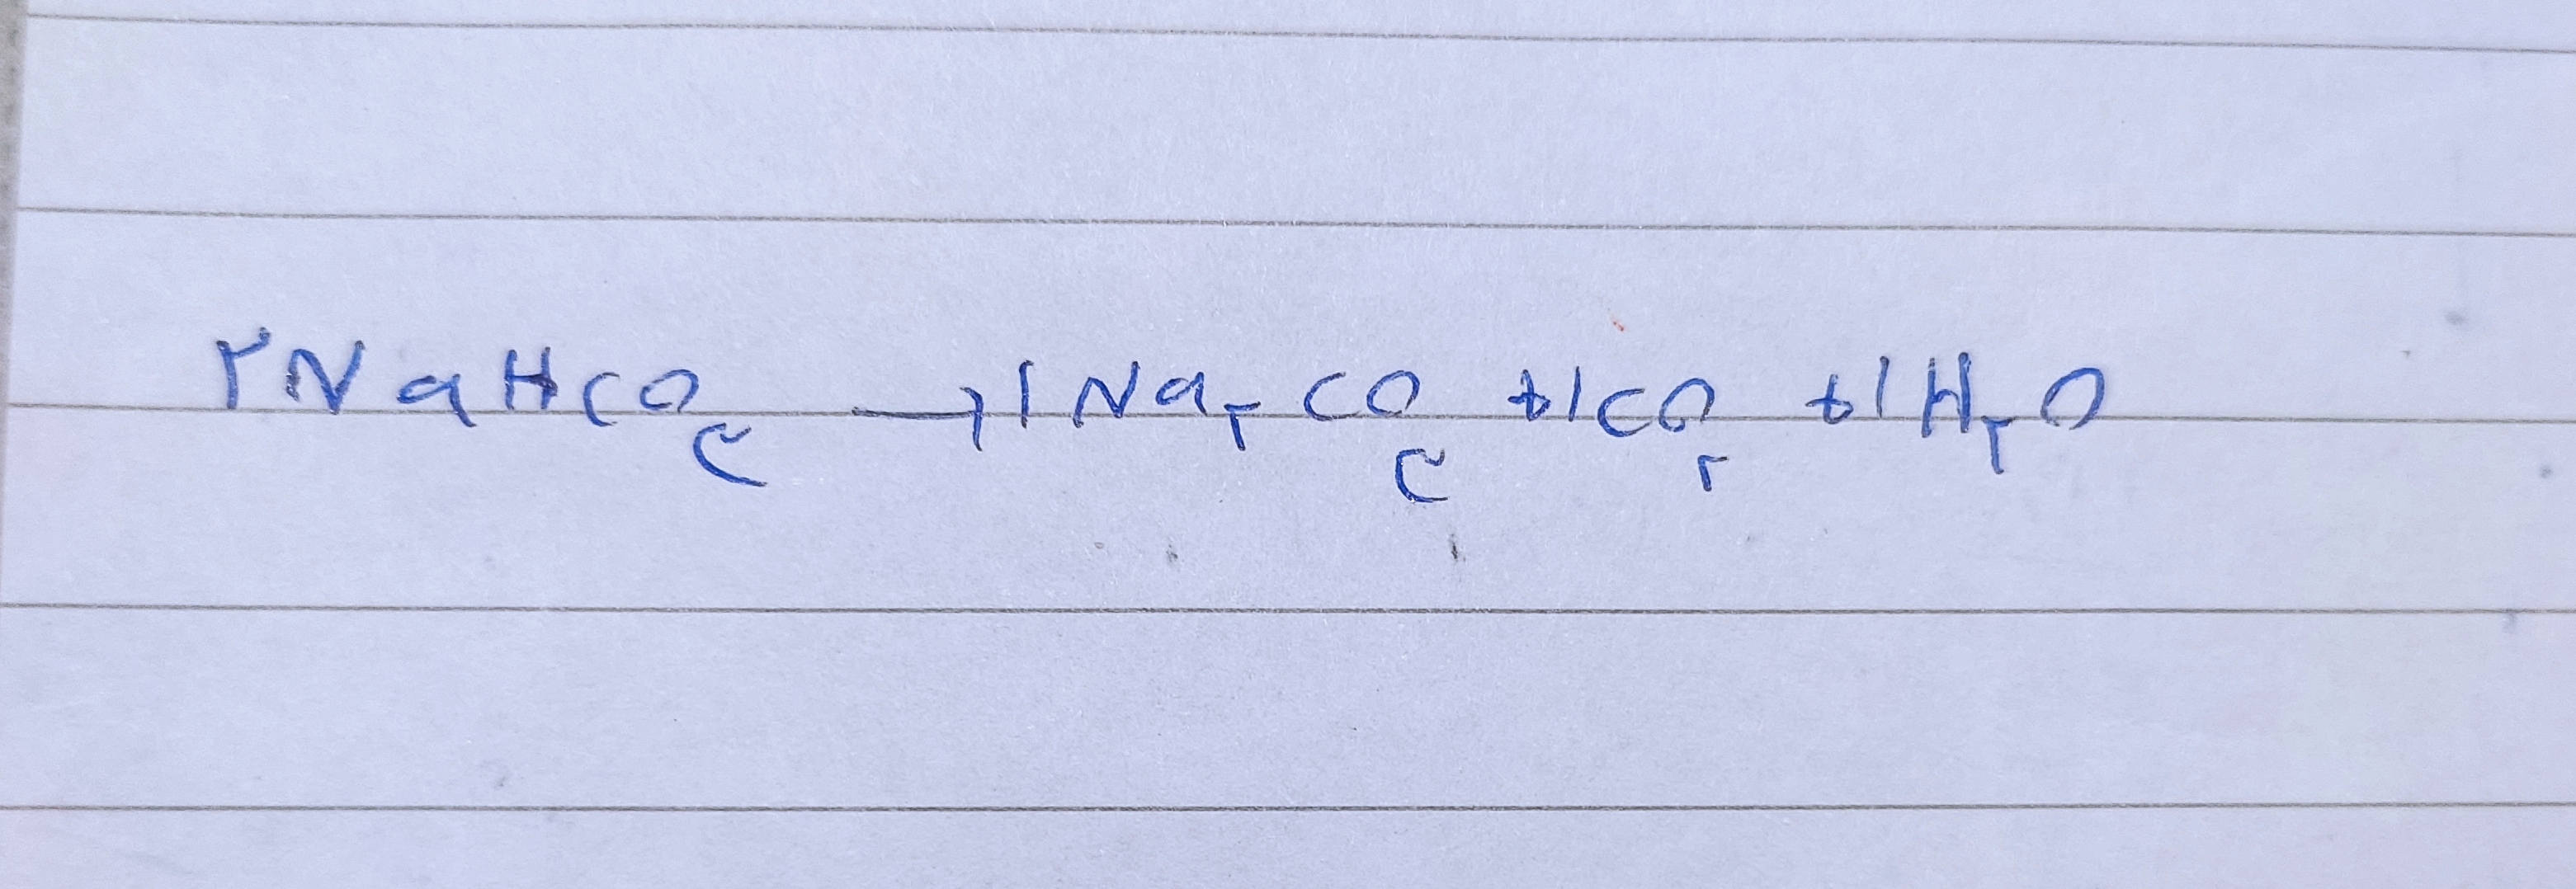 ۲NaHCO۳ → ۱Na۲CO۳ + ۱CO۲ + ۱H۲O